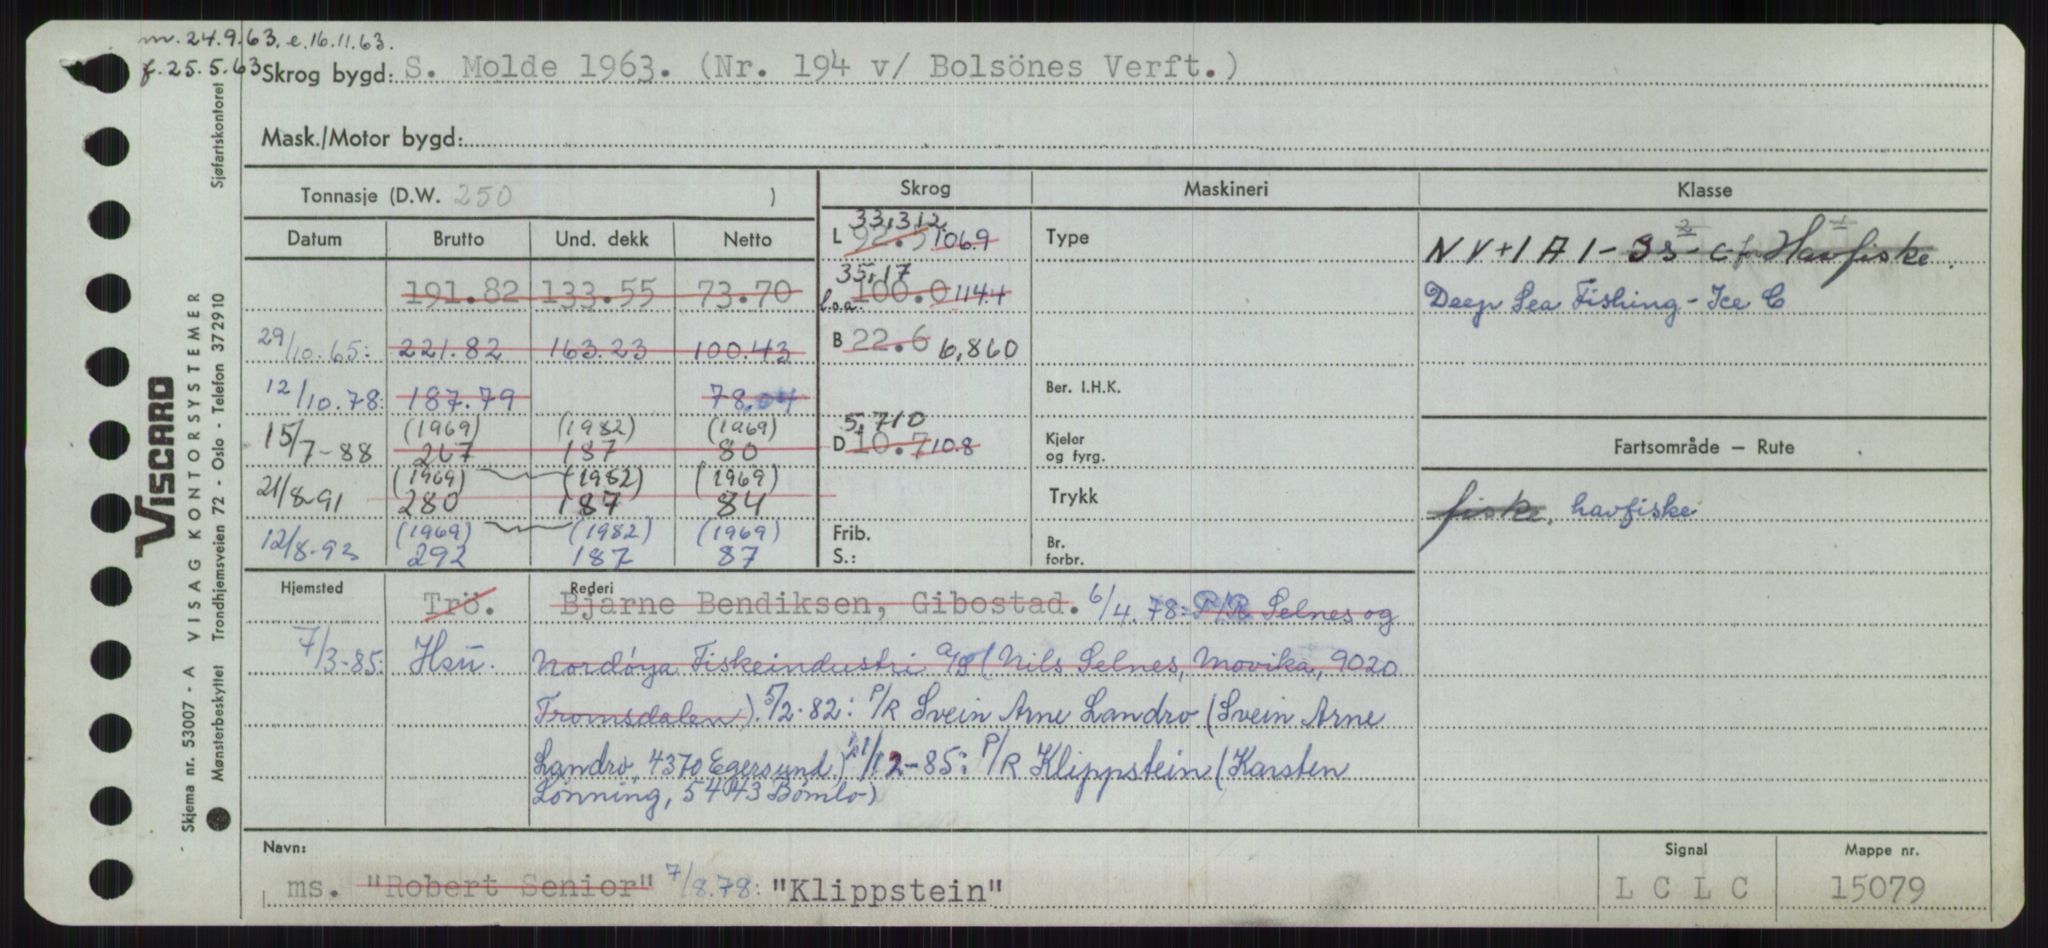 m. 24.9.63. e. 16.11.63.
f. 25.5.63 Skrog bygd: S. Molde 1963. (Nr. 194 v/ Bolsönes Verft.)
Mask./Motor bygd:
Tonnasje (D.W. 250 )
Skrog Maskineri Klasse
Datum Brutto Und. dekk Netto
191.82 133.55 73.70
29/10.65: 221.82 163.23 100.43
12/10.78: 187.79 78.04
(1969) (1982) (1969)
15/7-88 267 187 80
(1969) (1982) (1969)
21/8-91 280 187 84
(1969) (1982) (1969)
12/8-93 292 187 87
33,312
L 92.5 106.9
35,17
l.o.a. 100.0 114.4
B 22.6 6,860
5,710
D 10.7 10.8
Frib.
S.:
Type
Ber. I.H.K.
Kjeler
og fyrg.
Trykk
Br.
forbr.
NV+1A1- SS-C for Havfiske.
Deep Sea Fishing - Ice C
Fartsområde – Rute
fiske, havfiske
Hjemsted Rederi
Trö. Bjarne Bendiksen, Gibostad. 6/4.78: P/R Selnes og
7/3-85: Hsu. Nordøya Fiskeindustri a/s (Nils Selnes, Movika, 9020
Tromsdalen). 5/2-82: P/R Svein Arne Landro (Svein Arne
Landro, 4370 Egersund.) 11/12-85: P/R Klippstein (Karsten
Lønning, 5443 Bømlo)
Navn: Signal Mappe nr.
ms. "Robert Senior" 7/8.78: "Klippstein" LCLC 15079
VISCARD
Skjema nr. 53007 - A VISAG KONTORSYSTEMER
Mønsterbeskyttet Trondhjemsveien 72 - Oslo - Telefon 372910
Sjøfartskontoret